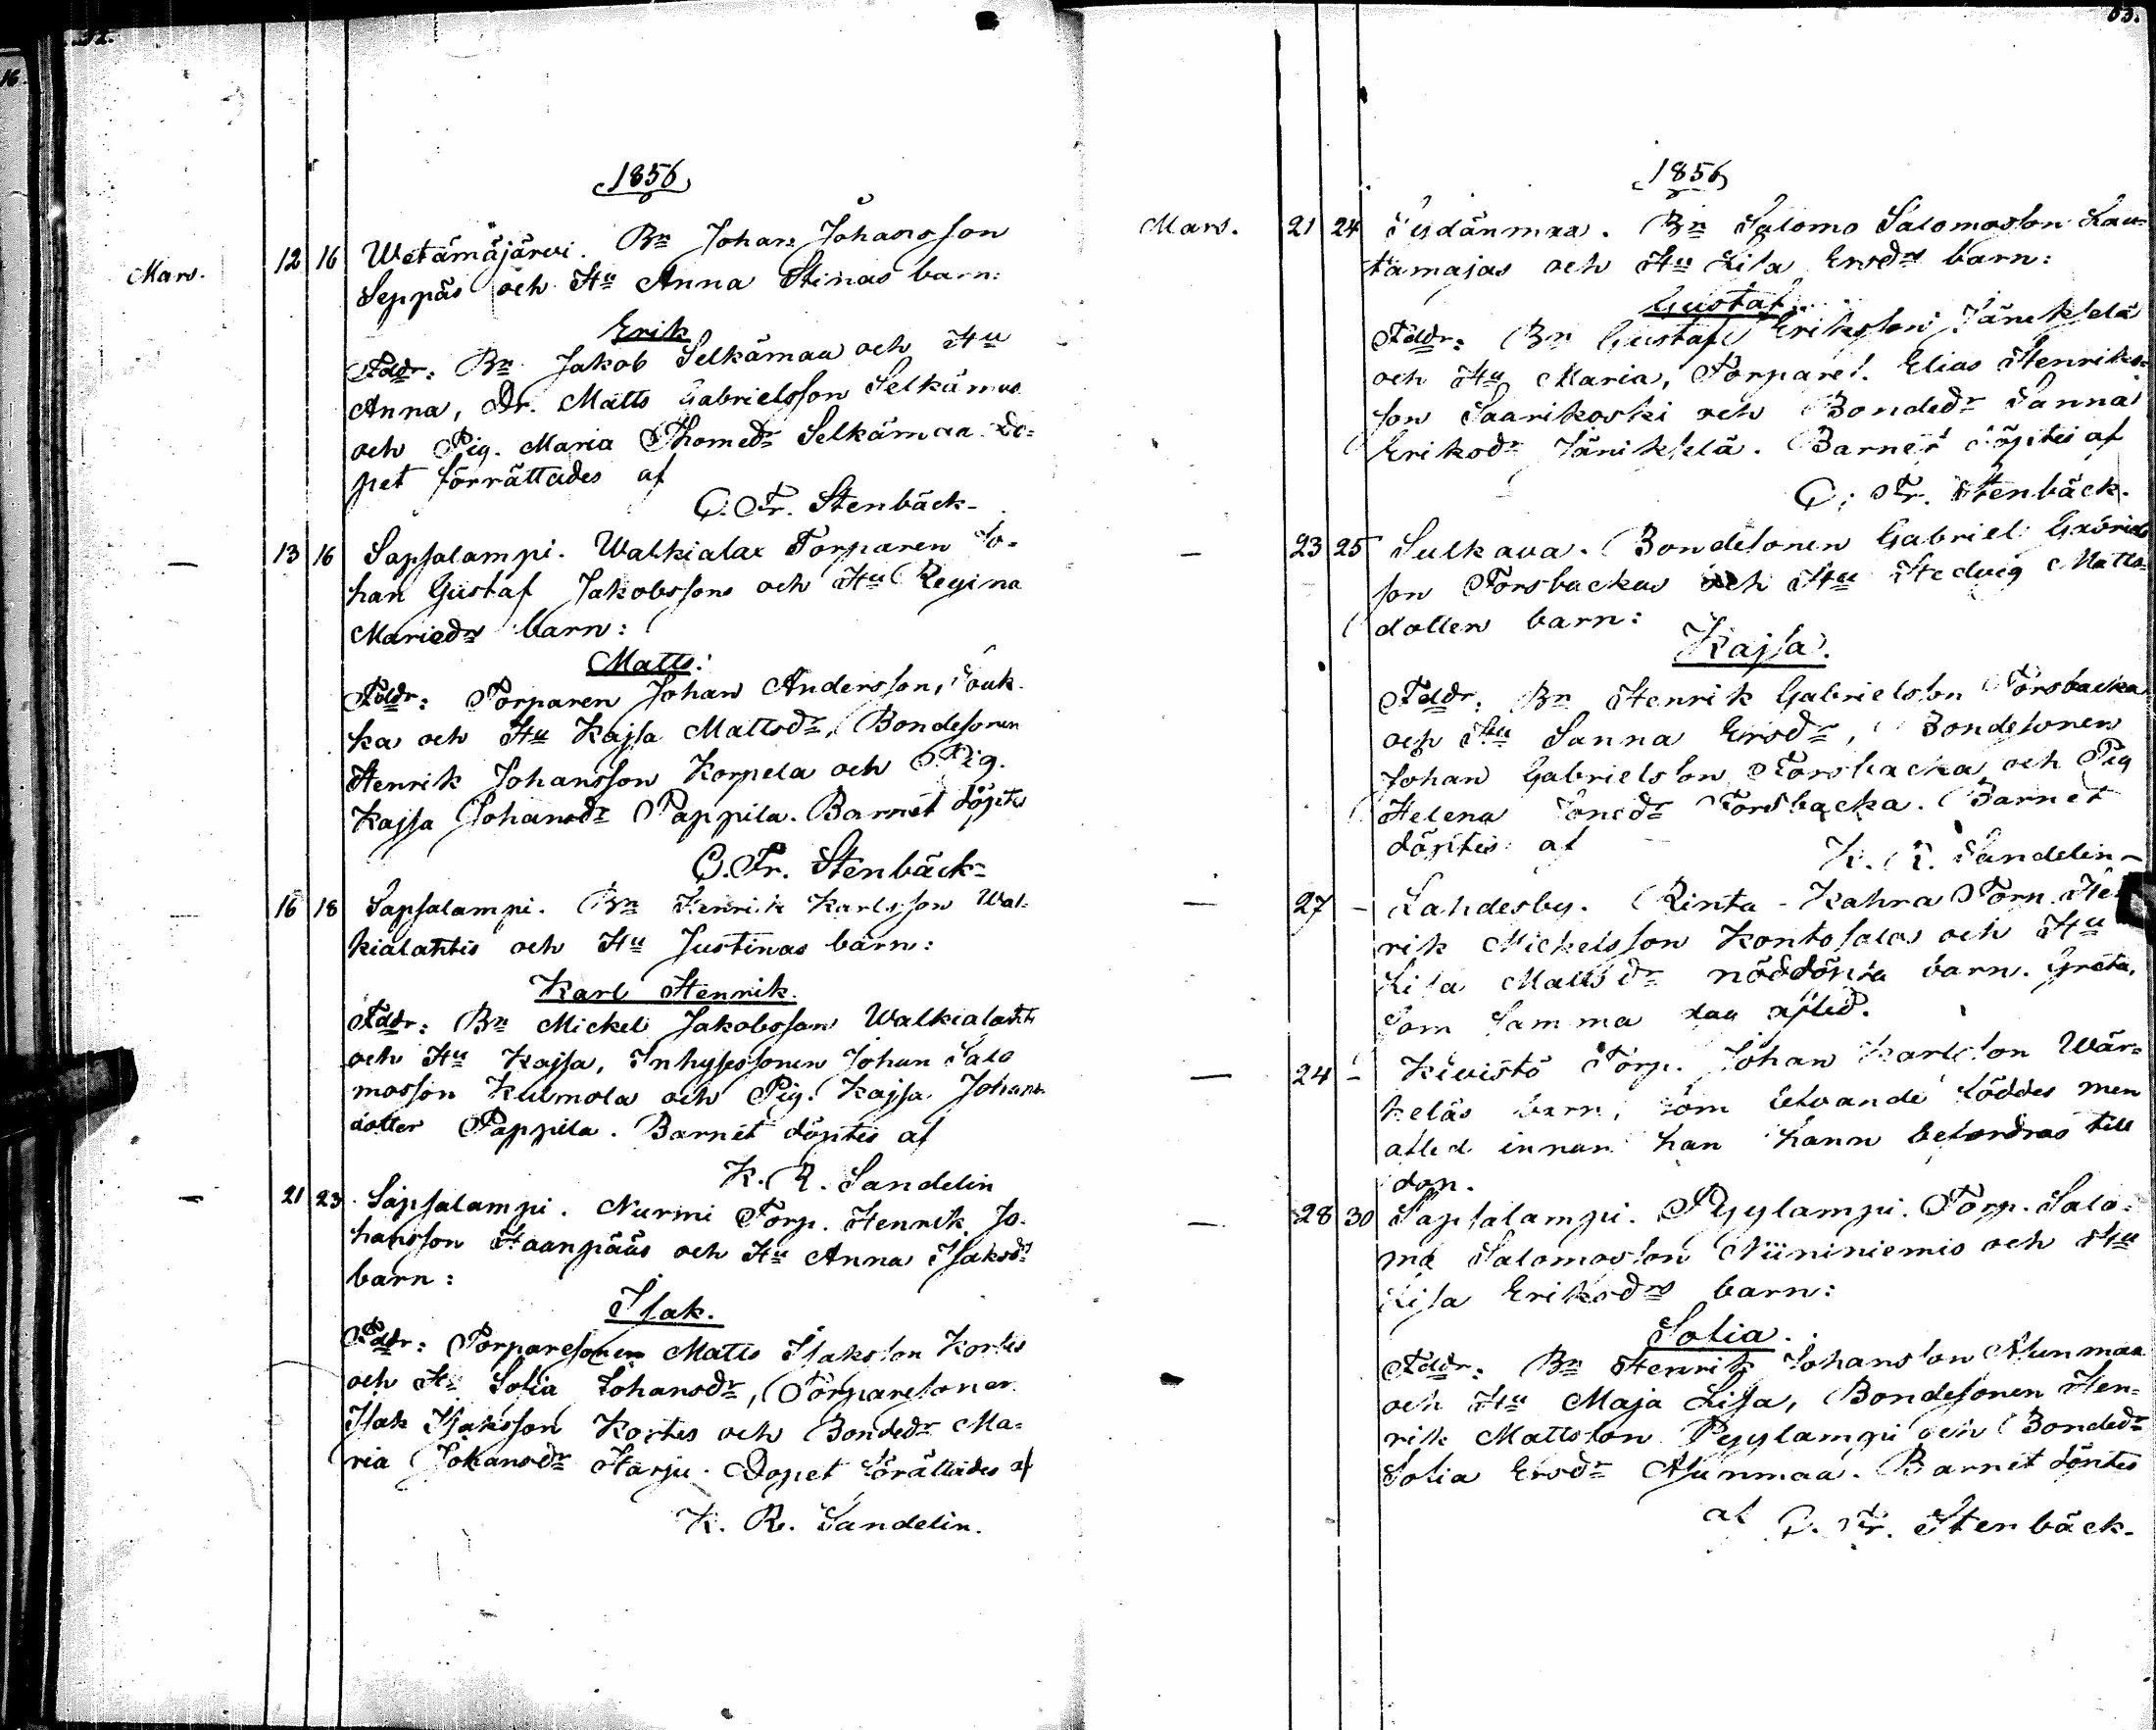 16.
1856
Mars. 12 16 Wetämäjärvi. Bn Johan Johansson
Seppäs och Hu Anna Stinas barn:
Erik
Fddr: Bn Jakob Selkämaa och Hu
Anna, Dr. Matts Gabrielsson Selkämaa
och Pig. Maria Thomedr Selkämaa. Do=
pet förrättades af
C. Fr. Stenbäck-
— 13 16 Sapsalampi. Walkialax Torparen Jo=
han Gustaf Jakobssons och Hu Regina
Mariedrs barn:
Matts.
Fddr: Torparen Johan Andersson, Jouk-
ka och Hu Kajsa Mattsdr, Bondesonen
Henrik Johansson Korpela och Pig.
Kajsa Johansdr Pappila. Barnet döptes
C. Fr. Stenbäck-
— 16 18 Sapsalampi. Bn Henrik Karlsson Wal-
kialahtis och Hu Justinas barn:
Karl Henrik.
Fddr: Bn Mickel Jakobsson Walkialahti
och Hu Kajsa, Inhysessonen Johan Salo
mosson Kulmola och Pig. Kajsa Johans-
dotter Pappila. Barnet döptes af
K. R. Sandelin
— 21 23 Sapsalampi. Nurmi Torp. Henrik Jo-
hansson Haanpääs och Hu Anna Isaksdrs
barn:
Isak.
Fddr: Torparesonen Matts Isaksson Kortes
och Hu Sofia Johansdr, Torparesonen
Isak Isaksson Kortes och Bondedr Ma=
ria Johansdr Harju. Dopet förättades af
K. R. Sandelin.
63.
1856
Mars. 21 24 Sydänmaa. Bn Salomo Salomosson Lau=
tamajas och Hu Lisa Ersdrs barn:
Gustaf.
Fddr: Bn Gustaf Eriksson Jänikselä
och Hu Maria, Torpares. Elias Henriks=
son Saarikoski och Bondedr Sanna
Eriksdr Jänikselä. Barnet döptes af
C. Fr. Stenbäck.
— 23 25 Sulkava. Bondesonen Gabriel Gabriels
son Forsbackas och Hu Hedvig Matts=
dotters barn:
Kajsa.
Fddr: Bn Henrik Gabrielsson Forsbacka
och Hu Sanna Ersdr, Bondesonen
Johan Gabrielsson Forsbacka och Pig
Helena Forsbacka. Barnet
döptes af
K. R. Sandelin-
— 27 - Lahdesby. Rinta-Kahra Torp. Hen
rik Mickelsson Kontosalas och Hu
Lisa Mattsdr nöddöpta barn. Greta,
som samma dag afled.
— 24 - Kivistö Torp. Johan Karlsson Wär=
keläs barn, som lefvande föddes men
afled innan han hann befordras till
dop.
— 28 30 Sapsalampi. Pyylampi. Torp. Salo=
mo Salomosson Niininiemis och Hu
Lisa Eriksdrs barn:
Sofia.
Fddr: Bn Henrik Johansson Alunmaa
och Hu Maja Lisa, Bondesonen Hen=
rik Mattsson Pyylampi och Bondedr
Sofia Ersdr Alunmaa. Barnet döptes
af C. Fr. Stenbäck-